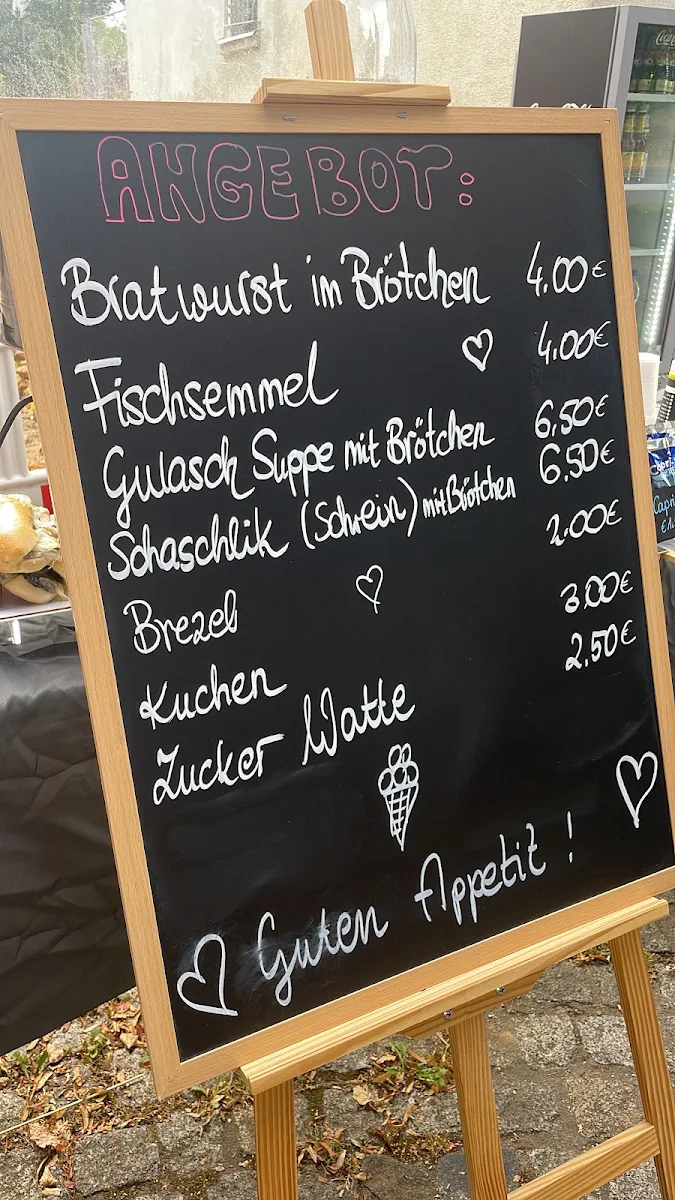 ANGEBOT:
Bratwurst im Brötchen 4.00€
Fischsemmel 4.00€
Gulasch Suppe mit Brötchen 6,50€
Schaschlik (Schwein) mit Brötchen 6,50€
Brezel 2.00€
Kuchen 3.00€
Zucker Watte 2.50€
Guten Appetit !